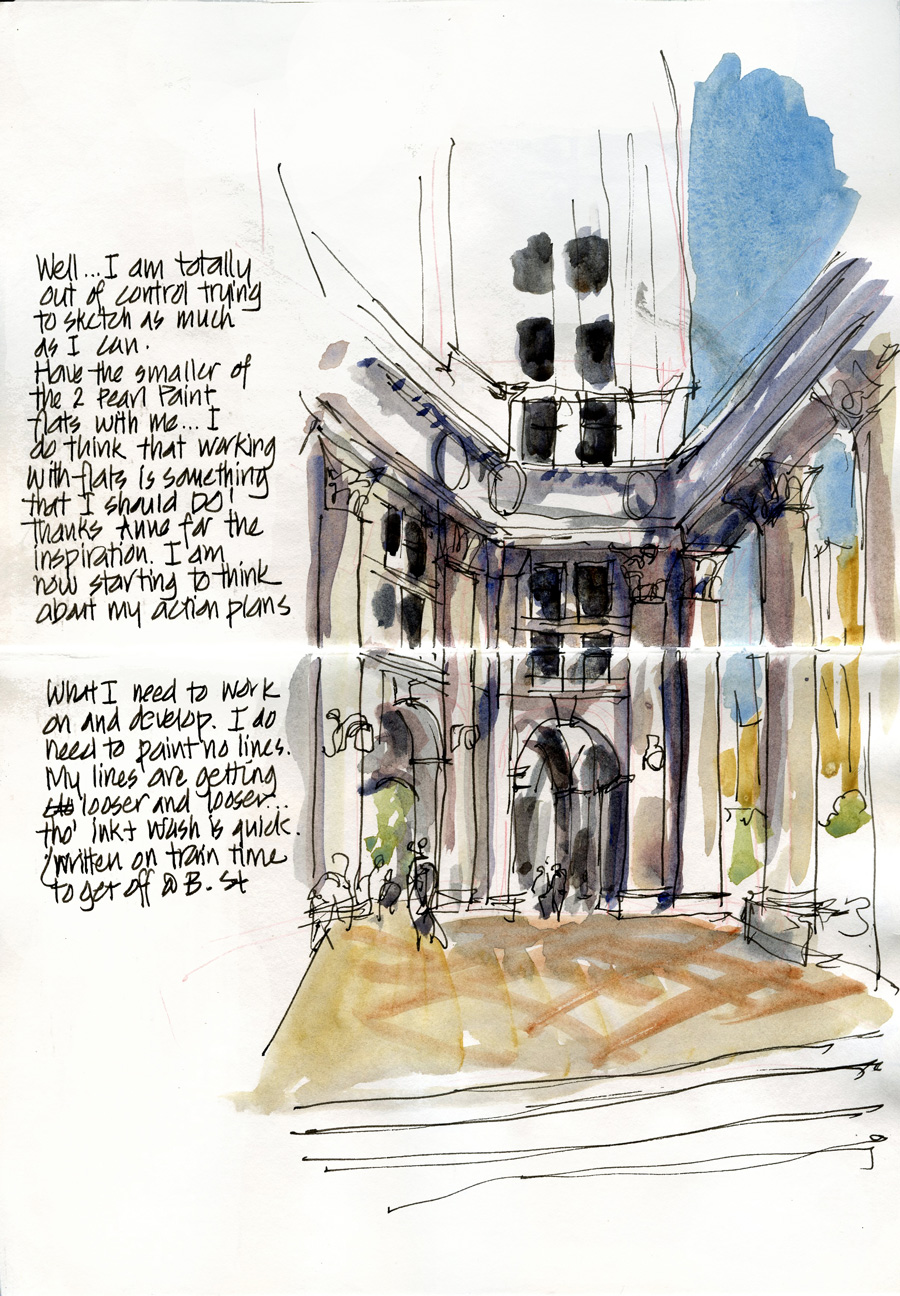 Well... I am totally
out of control trying
to sketch as much
as I can.
Have the smaller of
the 2 Pearl Paint
flats with me... I
do think that working
with flats is something
that I should DO!
thanks Anne for the
inspiration. I am
now starting to think
about my action plans
What I need to work
on and develop. I do
need to paint no lines.
My lines are getting
looser and looser...
tho' ink + wash is quick.
(written on train time
to get off @ B. St